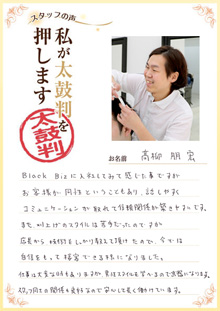 スタッフの声
私が太鼓判を
押します
太鼓判
お名前 高柳 朋宏
Black Bizに入社してみて感じた事ですが
お客様が同性ということもあり、話しやすく
コミュニケーションが取れて信頼関係が築きやすいです。
また、刈上げのスタイルは苦手だったのですが
店長から技術をしっかり教えて頂けたので、今では
自信をもって接客できる様になりました。
仕事は大変な時もありますが、
スタッフ同士の関係も良好なので安心して長く働けています。